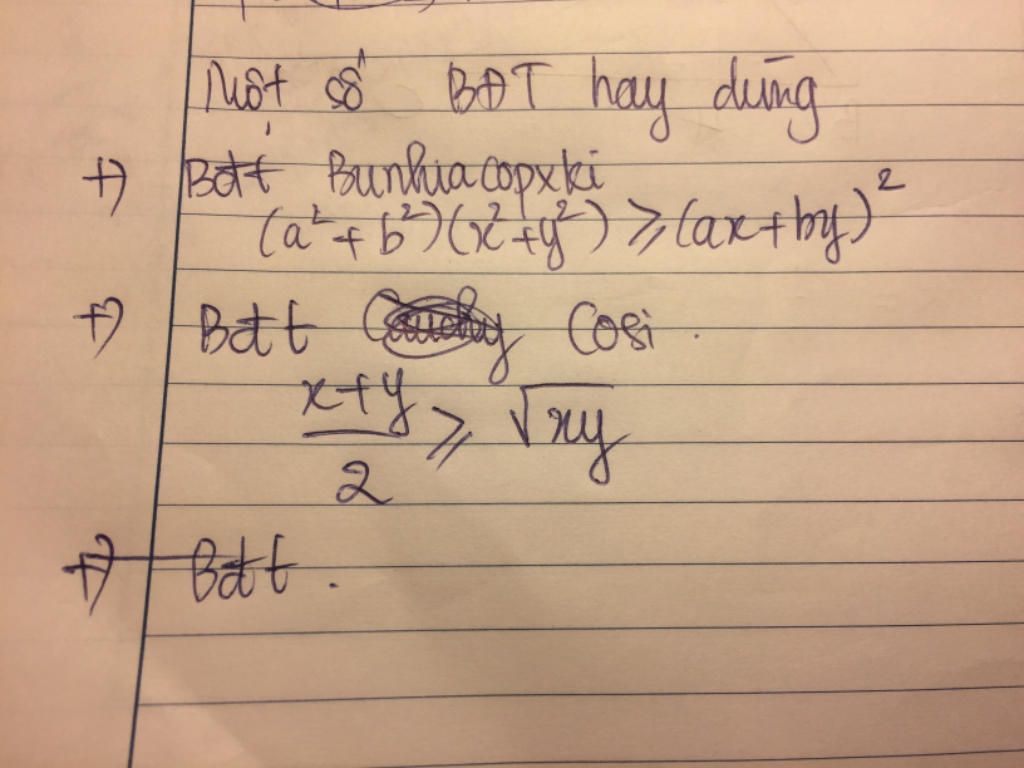 Một số BĐT hay dùng
+) Bđt Bunhiacopxki
(a² + b²)(x² + y²) ⩾ (ax + by)²
+) Bđt Cosi.
x+y / 2 ⩾ √xy
+) Bđt.